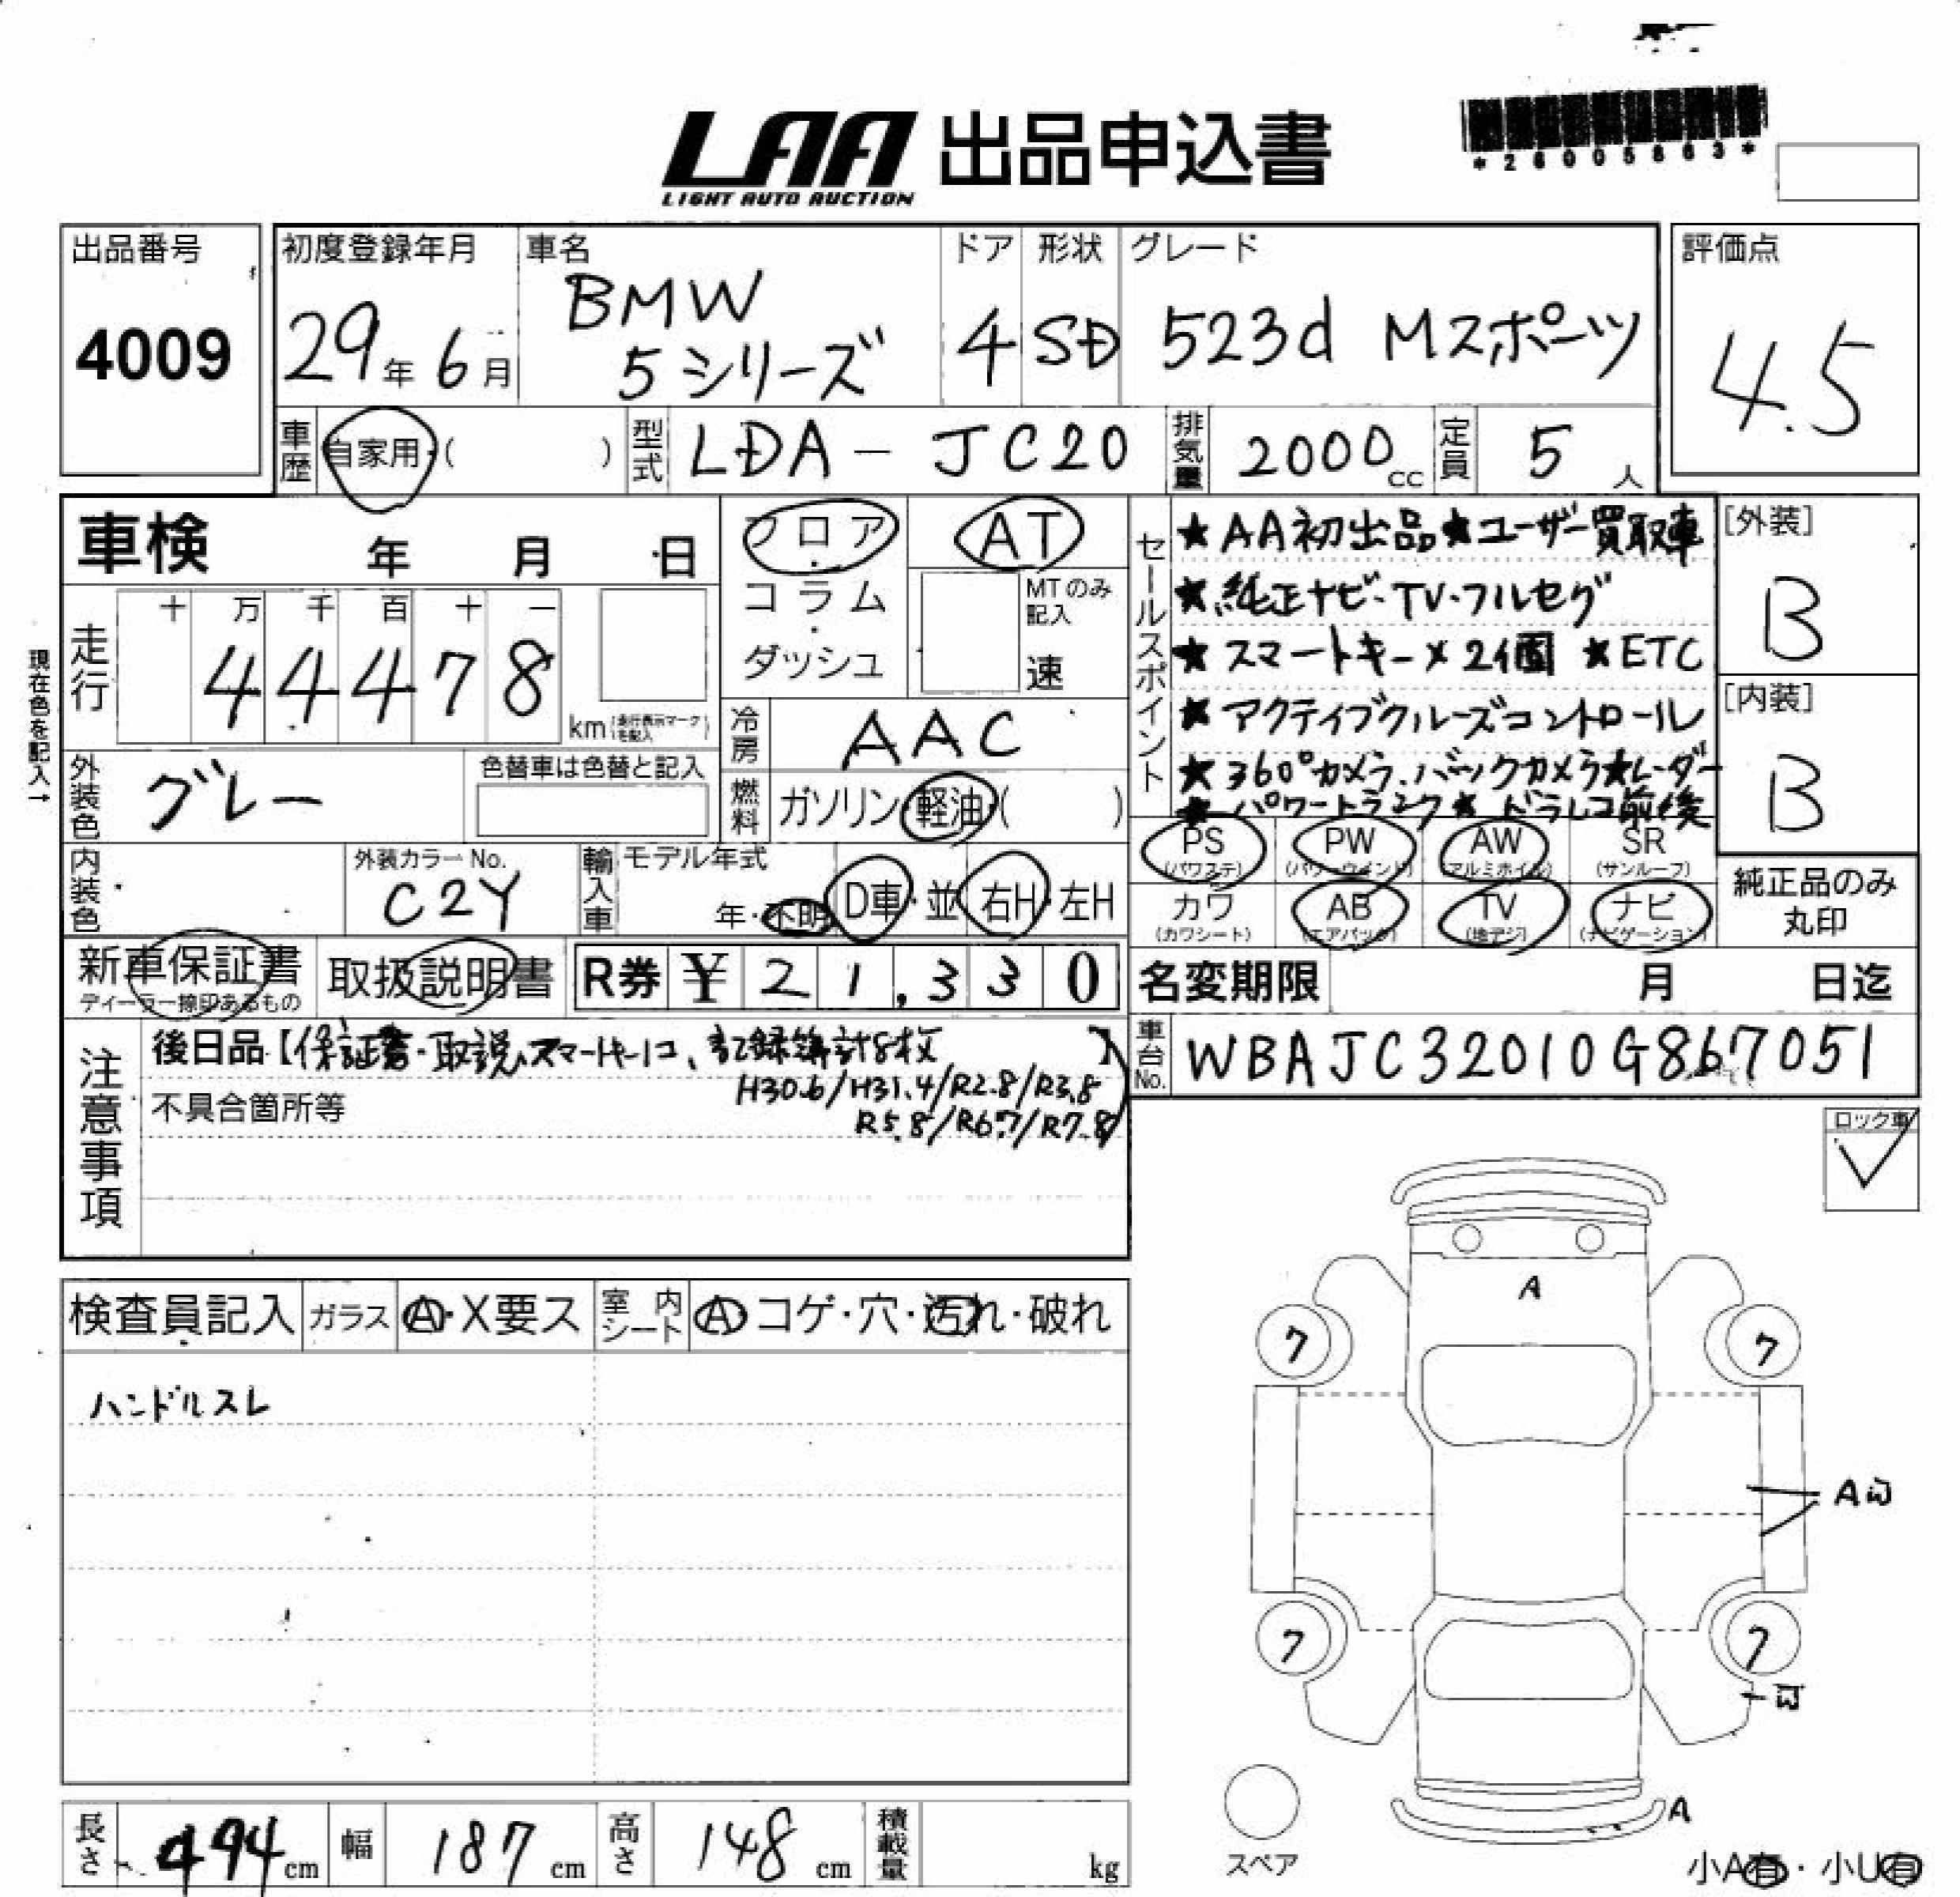 LAA 出品申込書
LIGHT AUTO AUCTION
*26005863*
出品番号
4009
初度登録年月
29年6月
車名
BMW
5シリーズ
ドア
4
形状
SD
グレード
523d Mスポーツ
評価点
4.5
車歴
自家用・( )
型式
LDA-JC20
排気量
2000cc
定員
5人
車検 年 月 日
フロア・コラム・ダッシュ
AT
MTのみ記入
速
セールスポイント
★AA初出品★ユーザー買取車
★純正ナビ・TV・フルセグ
★スマートキー×2個 ★ETC
★アクティブクルーズコントロール
★360°カメラ.バックカメラ★レーダー
★パワートランク★ドラレコ前後
[外装]
B
[内装]
B
現在色を記入→
走行
十 万 千 百 十 一
44478
km(走行表示マークを記入)
冷房
AAC
外装色
グレー
色替車は色替と記入
燃料
ガソリン・軽油・( )
PS (パワステ)
PW (パワーウインド)
AW (アルミホイル)
SR (サンルーフ)
カワ (カワシート)
AB (エアバック)
TV (地デジ)
ナビ (ナビゲーション)
純正品のみ
丸印
内装色
外装カラーNo.
C2Y
輸入車
モデル年式
年・不明
D車・並
右H・左H
新車保証書
ディーラー捺印あるもの
取扱説明書
R券 ¥21,330
名変期限 月 日迄
注意事項
後日品【保証書・取説、スマートキー1コ、記録簿計8枚】
H30.6/H31.4/R2.8/R3.8
R5.8/R6.7/R7.8
不具合箇所等
車台No.
WBAJC32010G867051
ロック車
検査員記入
ガラス
A・X要ス
室内シート
A・コゲ・穴・汚れ・破れ
ハンドルスレ
A
ワ
ワ
ワ
ワ
A
スペア
小A有・小U有
長さ 494cm
幅 187cm
高さ 148cm
積載量 kg